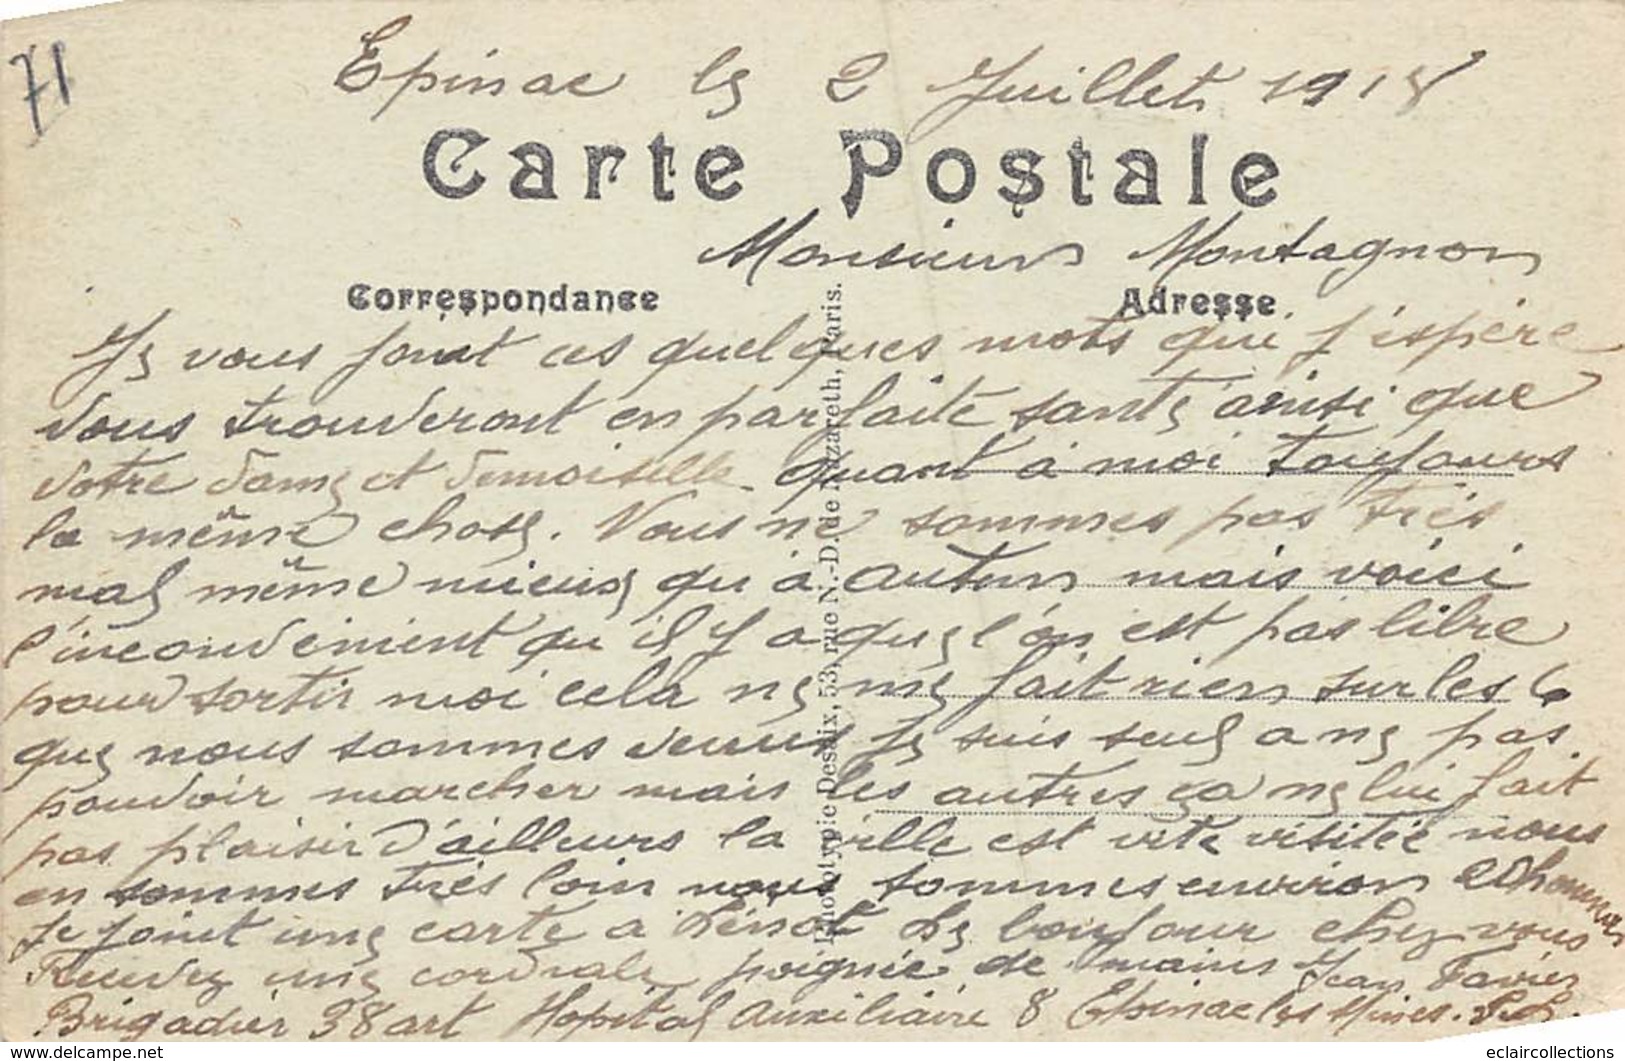 71
Epinac le 2 Juillet 1915
Carte Postale
Monsieur Montagnon
Correspondance
Adresse
Je vous joint ces quelques mots qui j'espère
vous trouveront en parfaite sante ainsi que
votre dame et demoiselle quant à moi toujours
la même chose. Nous ne sommes pas très
mal même mieux qu'à Autun mais voici
l'inconvenient qu'il y a que l'on est pas libre
pour sortir moi cela ne me fait rien sur les 6
que nous sommes venus je suis seul a ne pas
pouvoir marcher mais les autres ça ne lui fait
pas plaisir d'ailleurs la ville est vite visitée nous
en sommes très loin nous sommes environ
Je joint une carte a le bonjour chez vous
Recevez une cordiale poignée de mains Jean Favier
Brigadier 38 art Hopital Auxiliaire 8 Epinac les Mines. S.L.
Phototypie Desaix, 53, rue N.-D. de Nazareth, Paris.
www.delcampe.net
eclaircollections